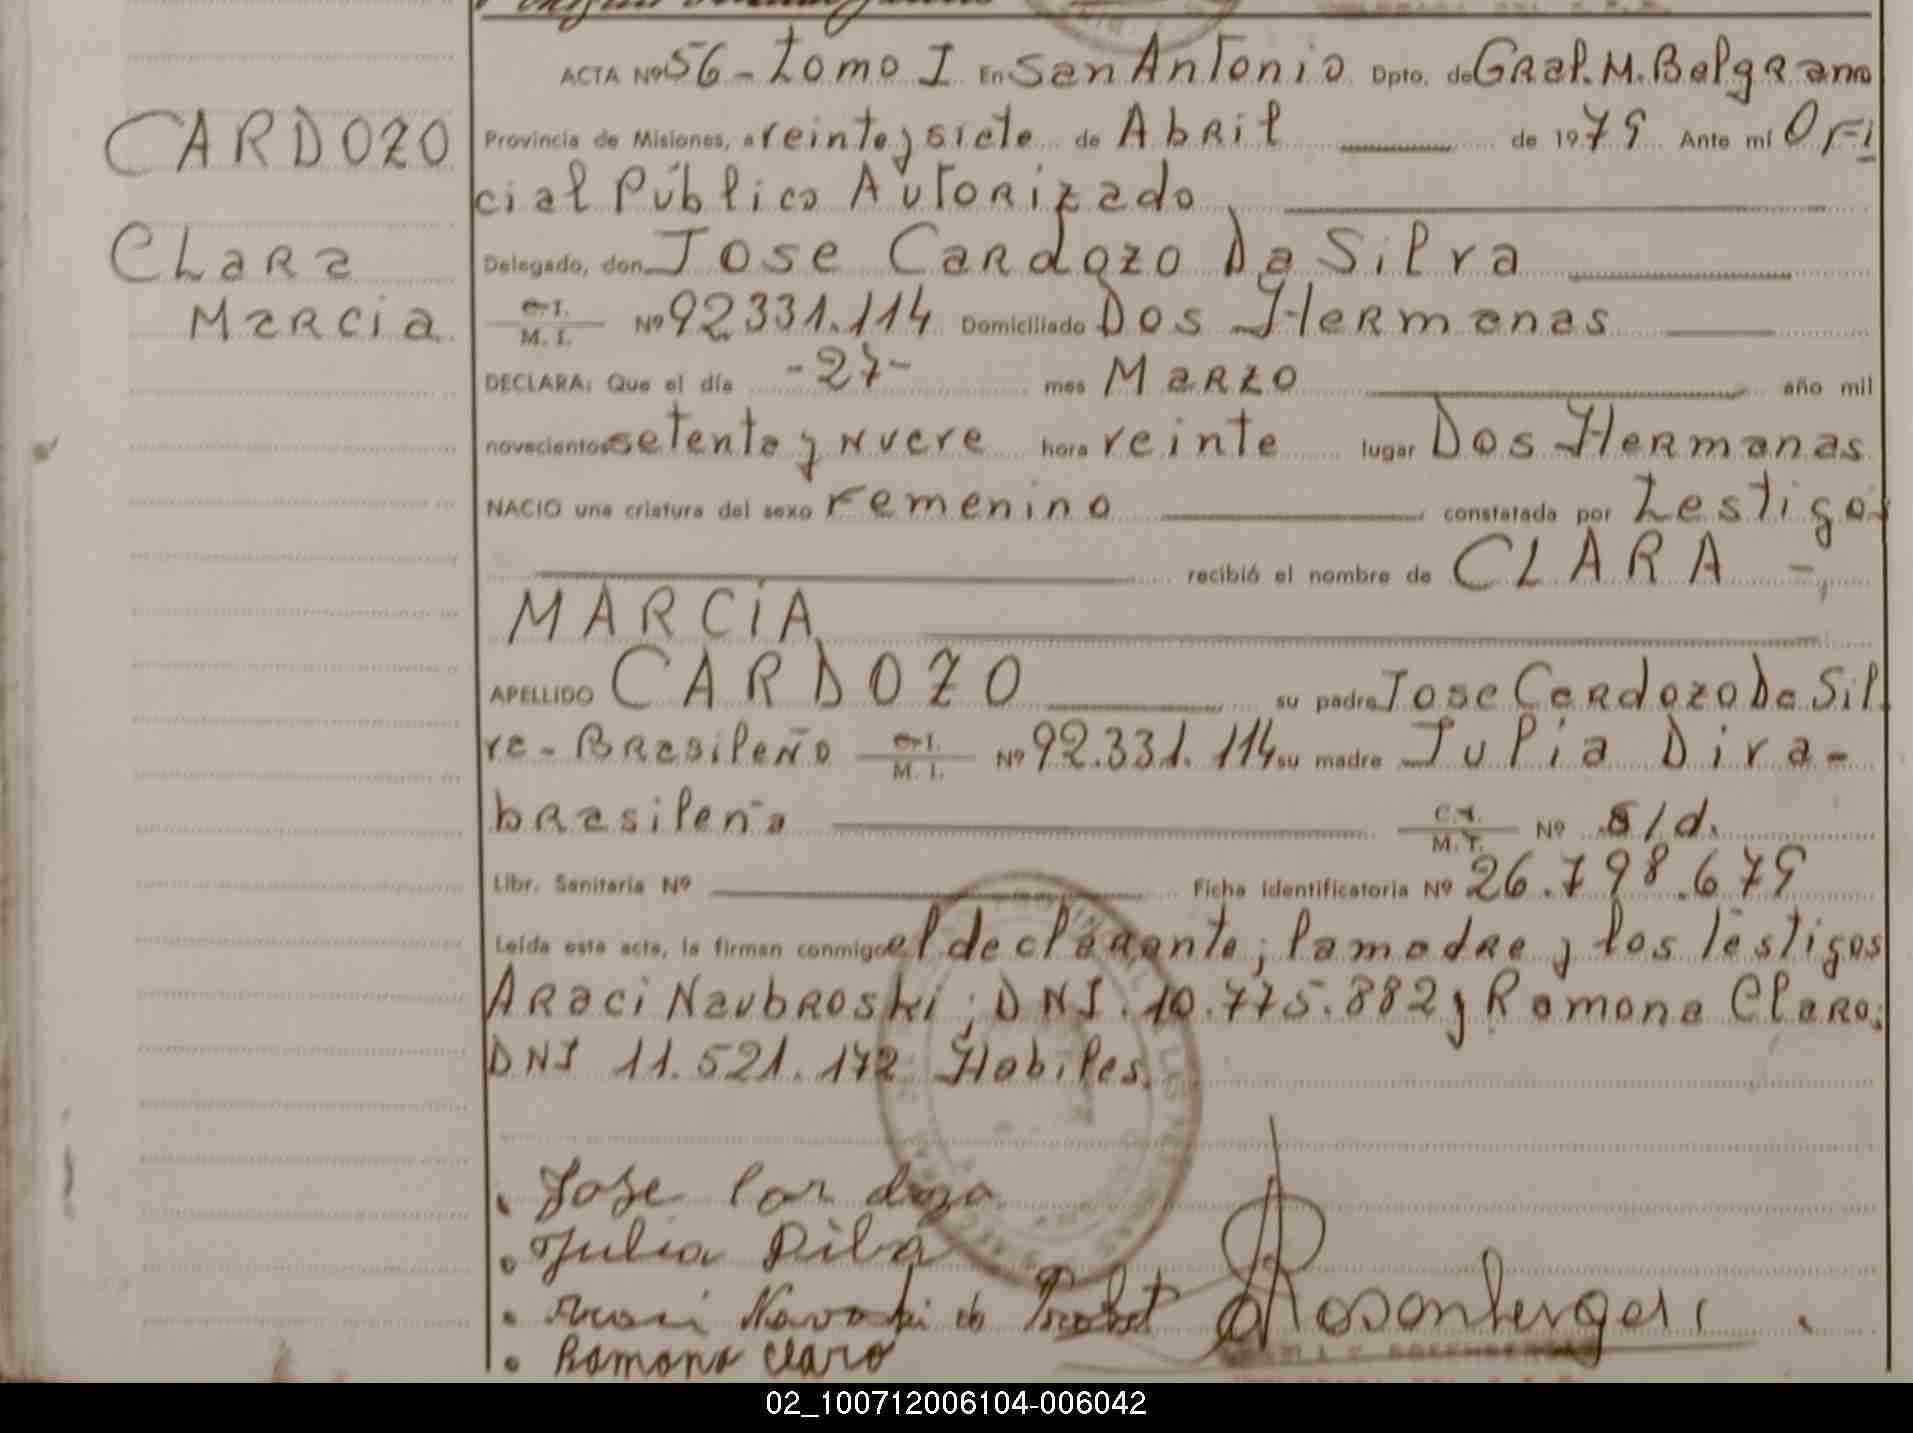 ACTA Nº 56 - Tomo I En San Antonio Dpto. de Gral. M. Belgrano
CARDOZO Provincia de Misiones, a veinte y siete de Abril de 1979 Ante mí Ofi
cial Público Autorizado
Clara Delegado, don Jose Cardozo Da Silva
Marcia C.I. M.I. Nº 92331.114 Domiciliado Dos Hermanas
DECLARA: Que el día -27- mes Marzo año mil
novecientos setenta y nueve hora veinte lugar Dos Hermanas
NACIO una criatura del sexo Femenino constatada por Testigos
recibió el nombre de CLARA -
MARCIA
APELLIDO CARDOZO su padre Jose Cardozo Da Sil
va - Brasileño C.I. M.I. Nº 92.331.114 su madre Julia Diva -
brasileña C.I. M.I. Nº s/d.
Libr. Sanitaria Nº Ficha identificatoria Nº 26.798.679
Leída esta acta, la firman conmigo el declarante, la madre y los testigos
Araci Naubroski, DNI. 10.775.882 y Ramona Claro,
DNI 11.521.172 Habiles.
Jose Cardozo
Julia Diba
Ramona Claro
02_100712006104-006042